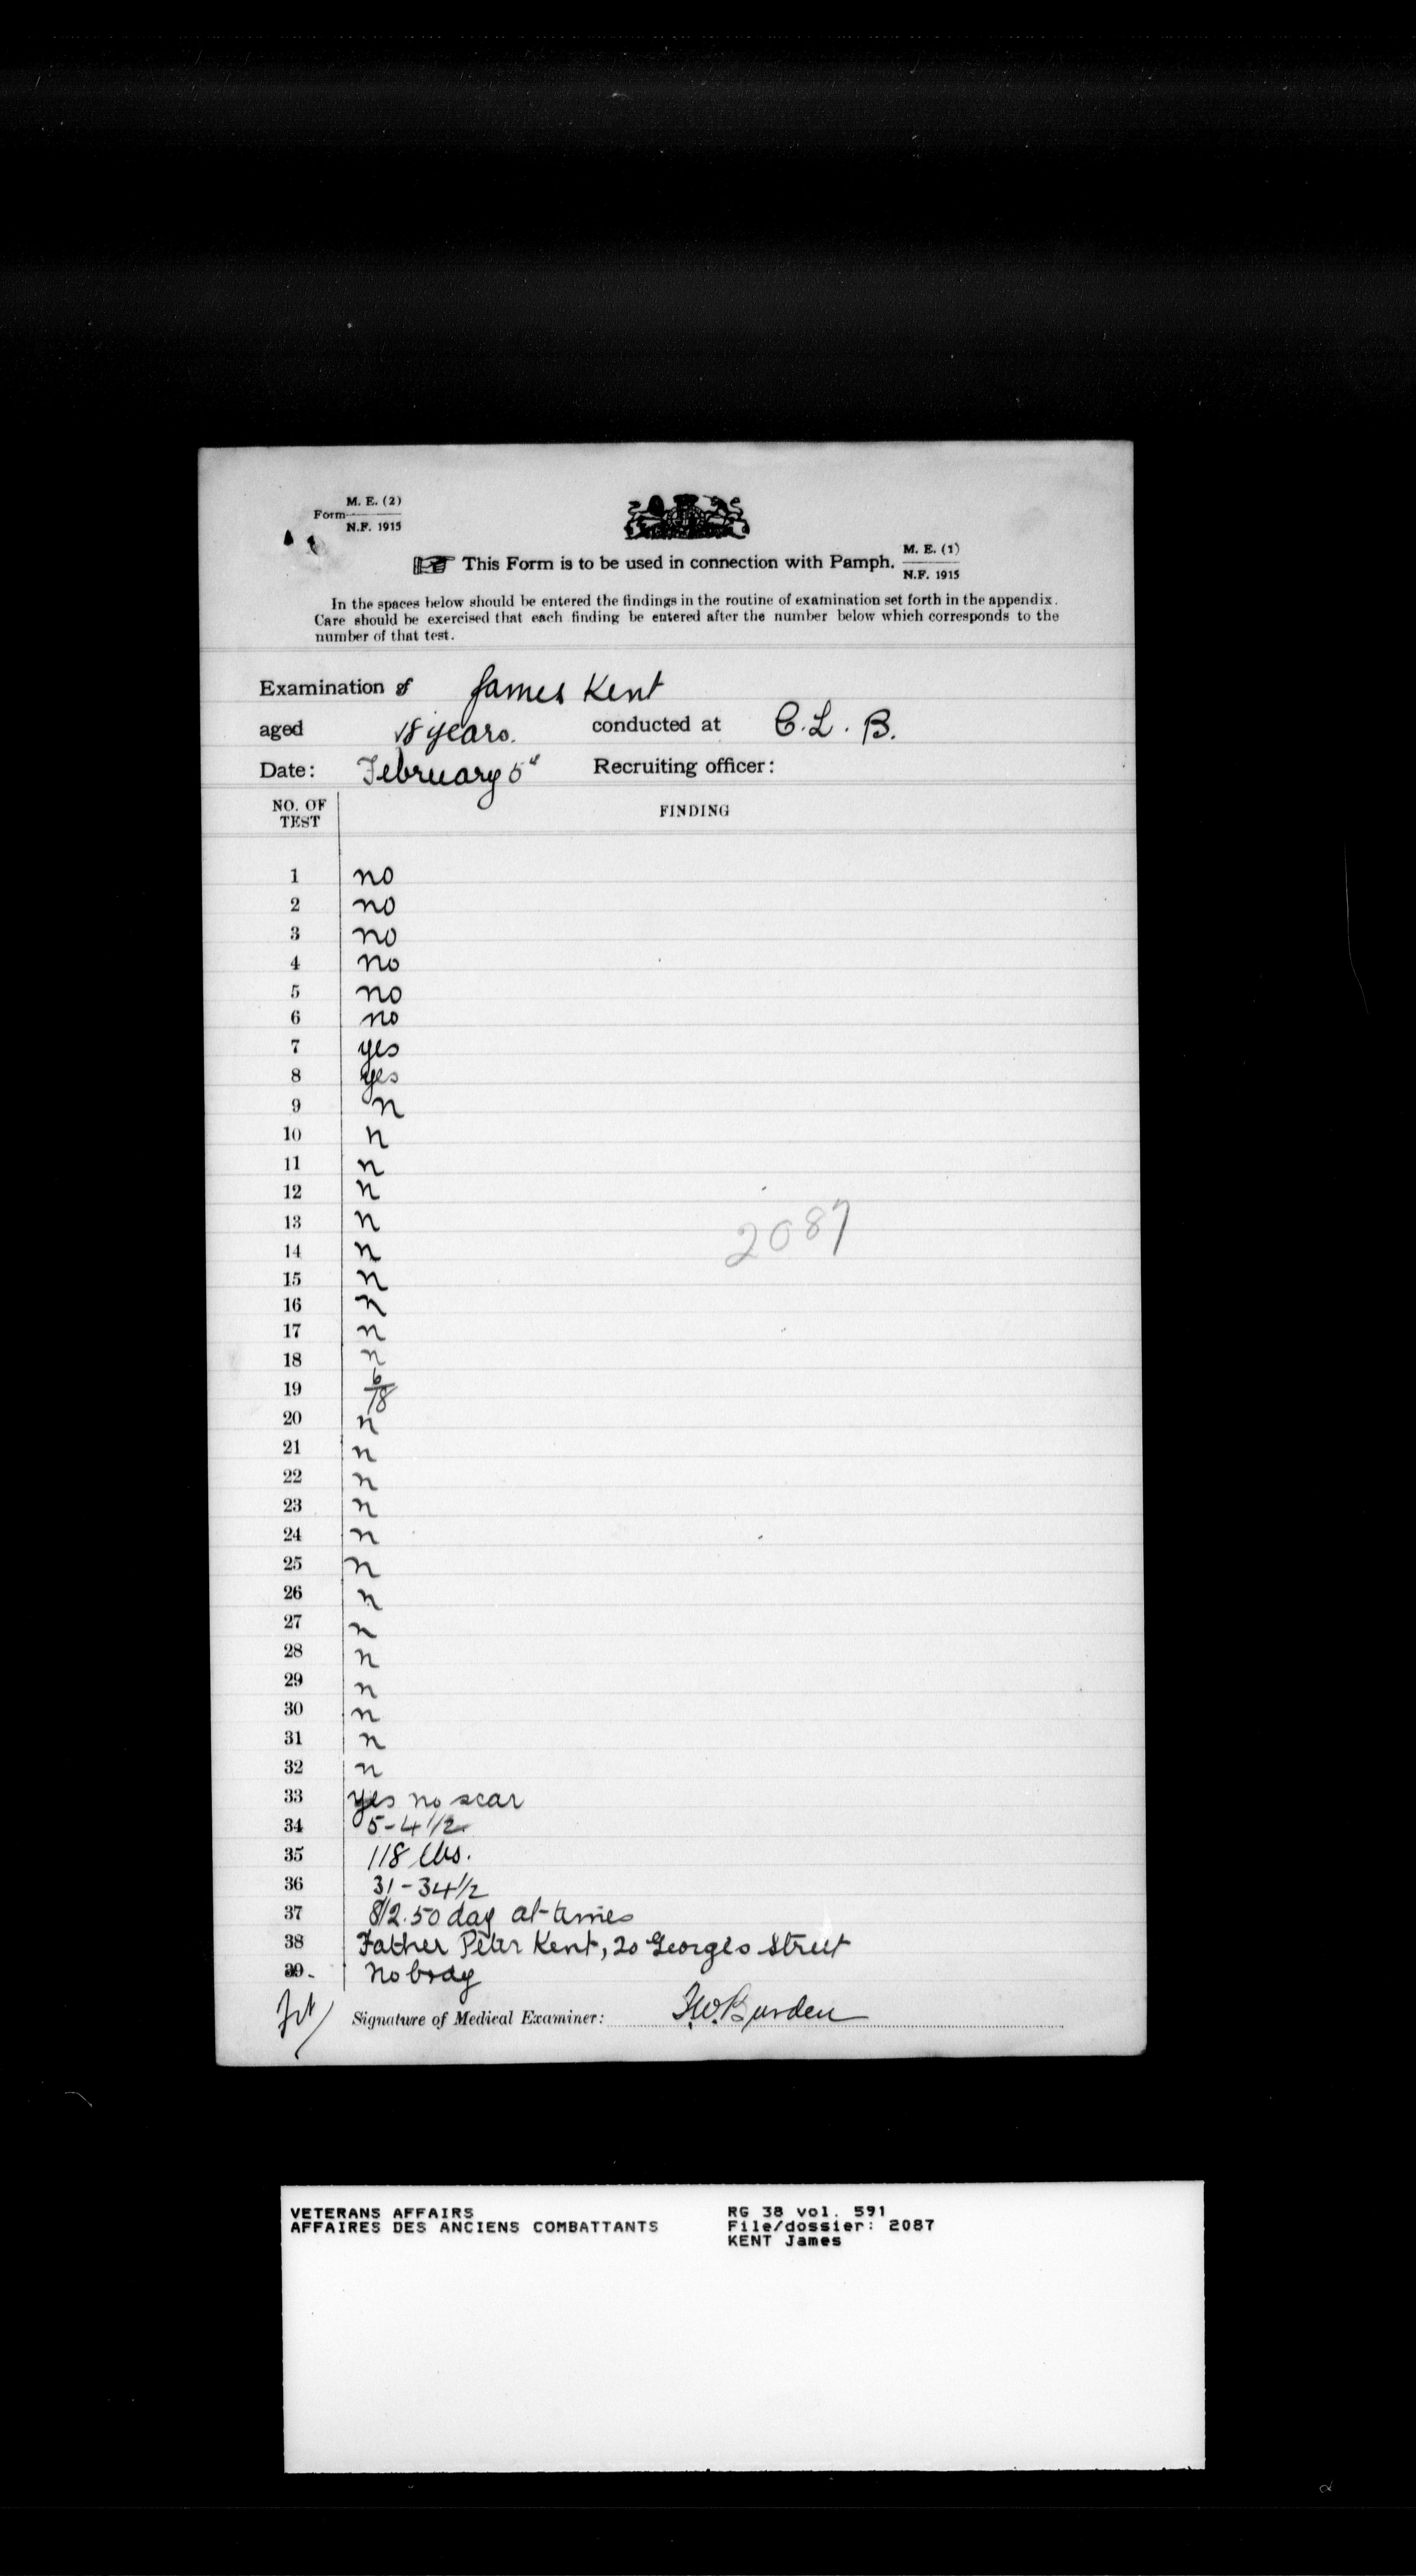 M. E. (2)
Form
N.F. 1915
This Form is to be used in connection with Pamph. M. E. (1)
N.F. 1915
In the spaces below should be entered the findings in the routine of examination set forth in the appendix.
Care should be exercised that each finding be entered after the number below which corresponds to the
number of that test.
Examination of James Kent
aged 18 years. conducted at C. L. B.
Date: February 5th Recruiting officer:
NO. OF TEST FINDING
1 no
2 no
3 no
4 no
5 no
6 no
7 yes
8 yes
9 n
10 n
11 n
12 n
13 n
2087
14 n
15 n
16 n
17 n
18 n
19 6/18
20 n
21 n
22 n
23 n
24 n
25 n
26 n
27 n
28 n
29 n
30 n
31 n
32 n
33 yes no scar
34 5-4 1/2
35 118 lbs.
36 31-34 1/2
37 2.50 day at times
38 Father Peter Kent, 20 Georges Street
39. Nobody
Signature of Medical Examiner: Burden
VETERANS AFFAIRS
AFFAIRES DES ANCIENS COMBATTANTS
RG 38 vol. 591
File/dossier: 2087
KENT James